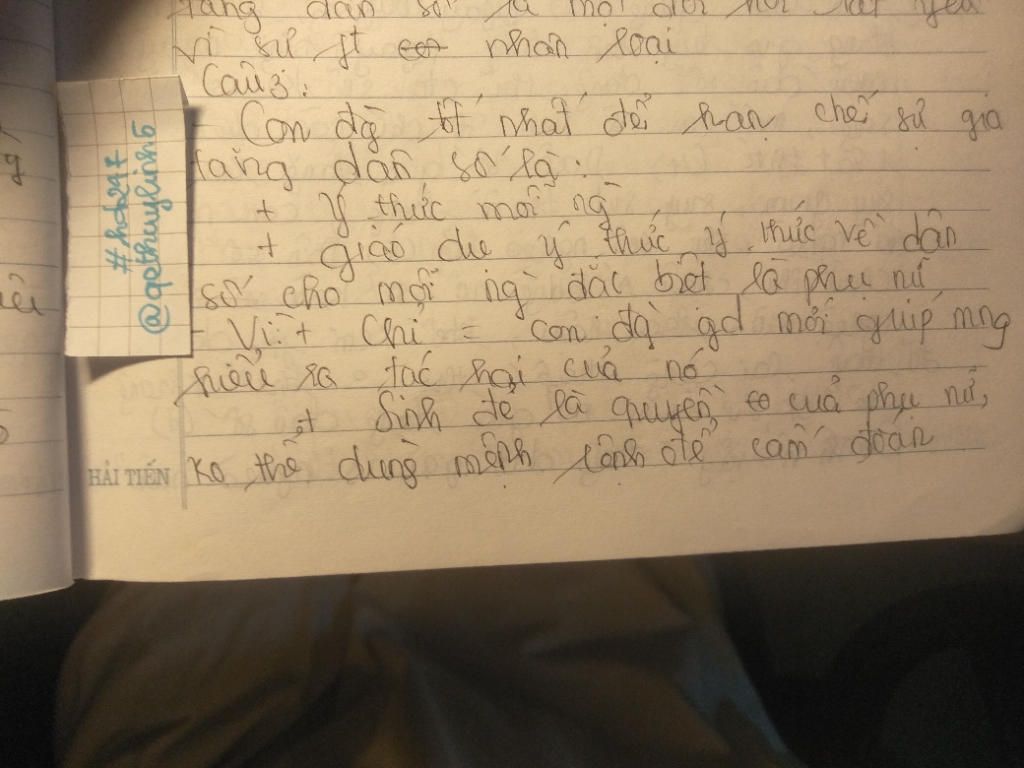 tăng dân số là một đòi hỏi tất yếu
vì sự pt nhân loại
Câu 3:
- Con đg tốt nhất để hạn chế sự gia
tăng dân số là:
+ Ý thức mỗi ng
+ giáo dục ý thức ý thức về dân
số cho mọi ng đặc biệt là phụ nữ
- Vì: + Chỉ = con đg gd mới giúp mng
hiểu ra tác hại của nó
+ Sinh đẻ là quyền của phụ nữ,
ko thể dùng mệnh lệnh để cấm đoán
HẢI TIẾN
#hoidap247